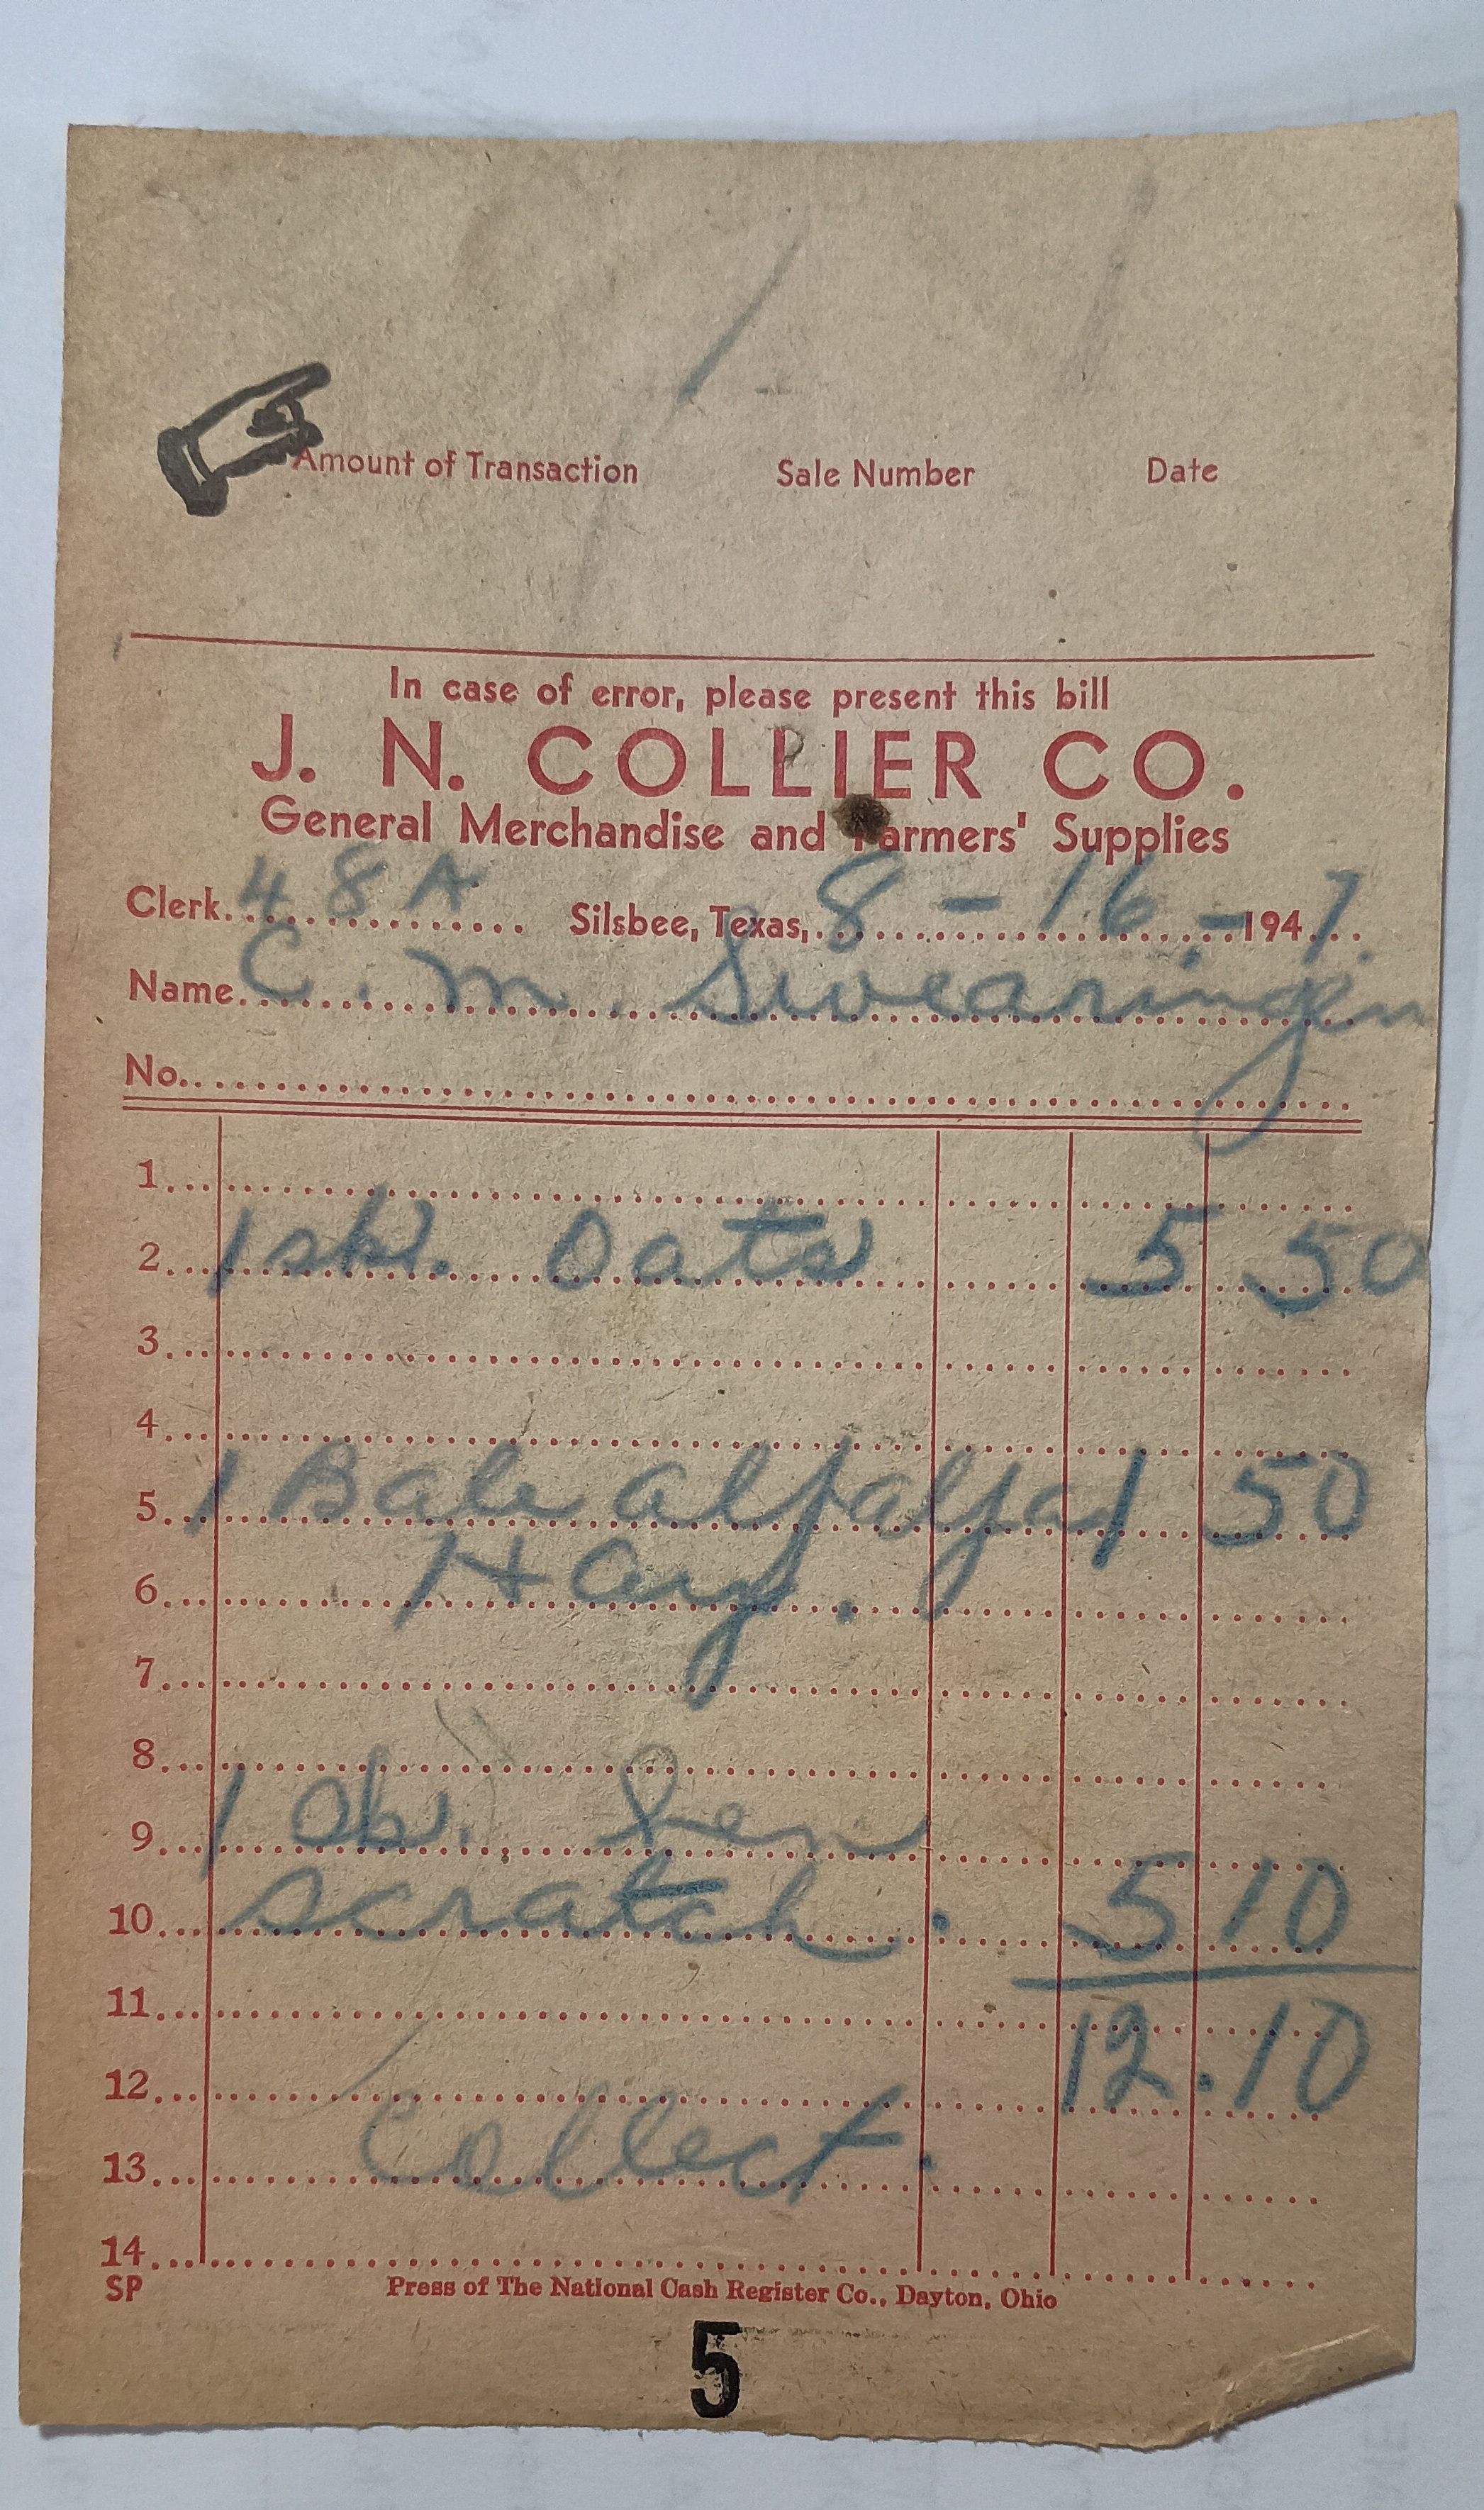 Amount of Transaction Sale Number Date
In case of error, please present this bill
J. N. COLLIER CO.
General Merchandise and Farmers' Supplies
Clerk 48A Silsbee, Texas, 8-16-1947.
Name C. M. Swearingen
No.
1
2 1 sk. Oats 5 50
3
4
5 1 Bale alfalfa 1 50
6 Hay.
7
8
9 1
10 scratch. 5 10
11
12 12.10
13 Collect.
14
SP Press of The National Cash Register Co., Dayton, Ohio
5